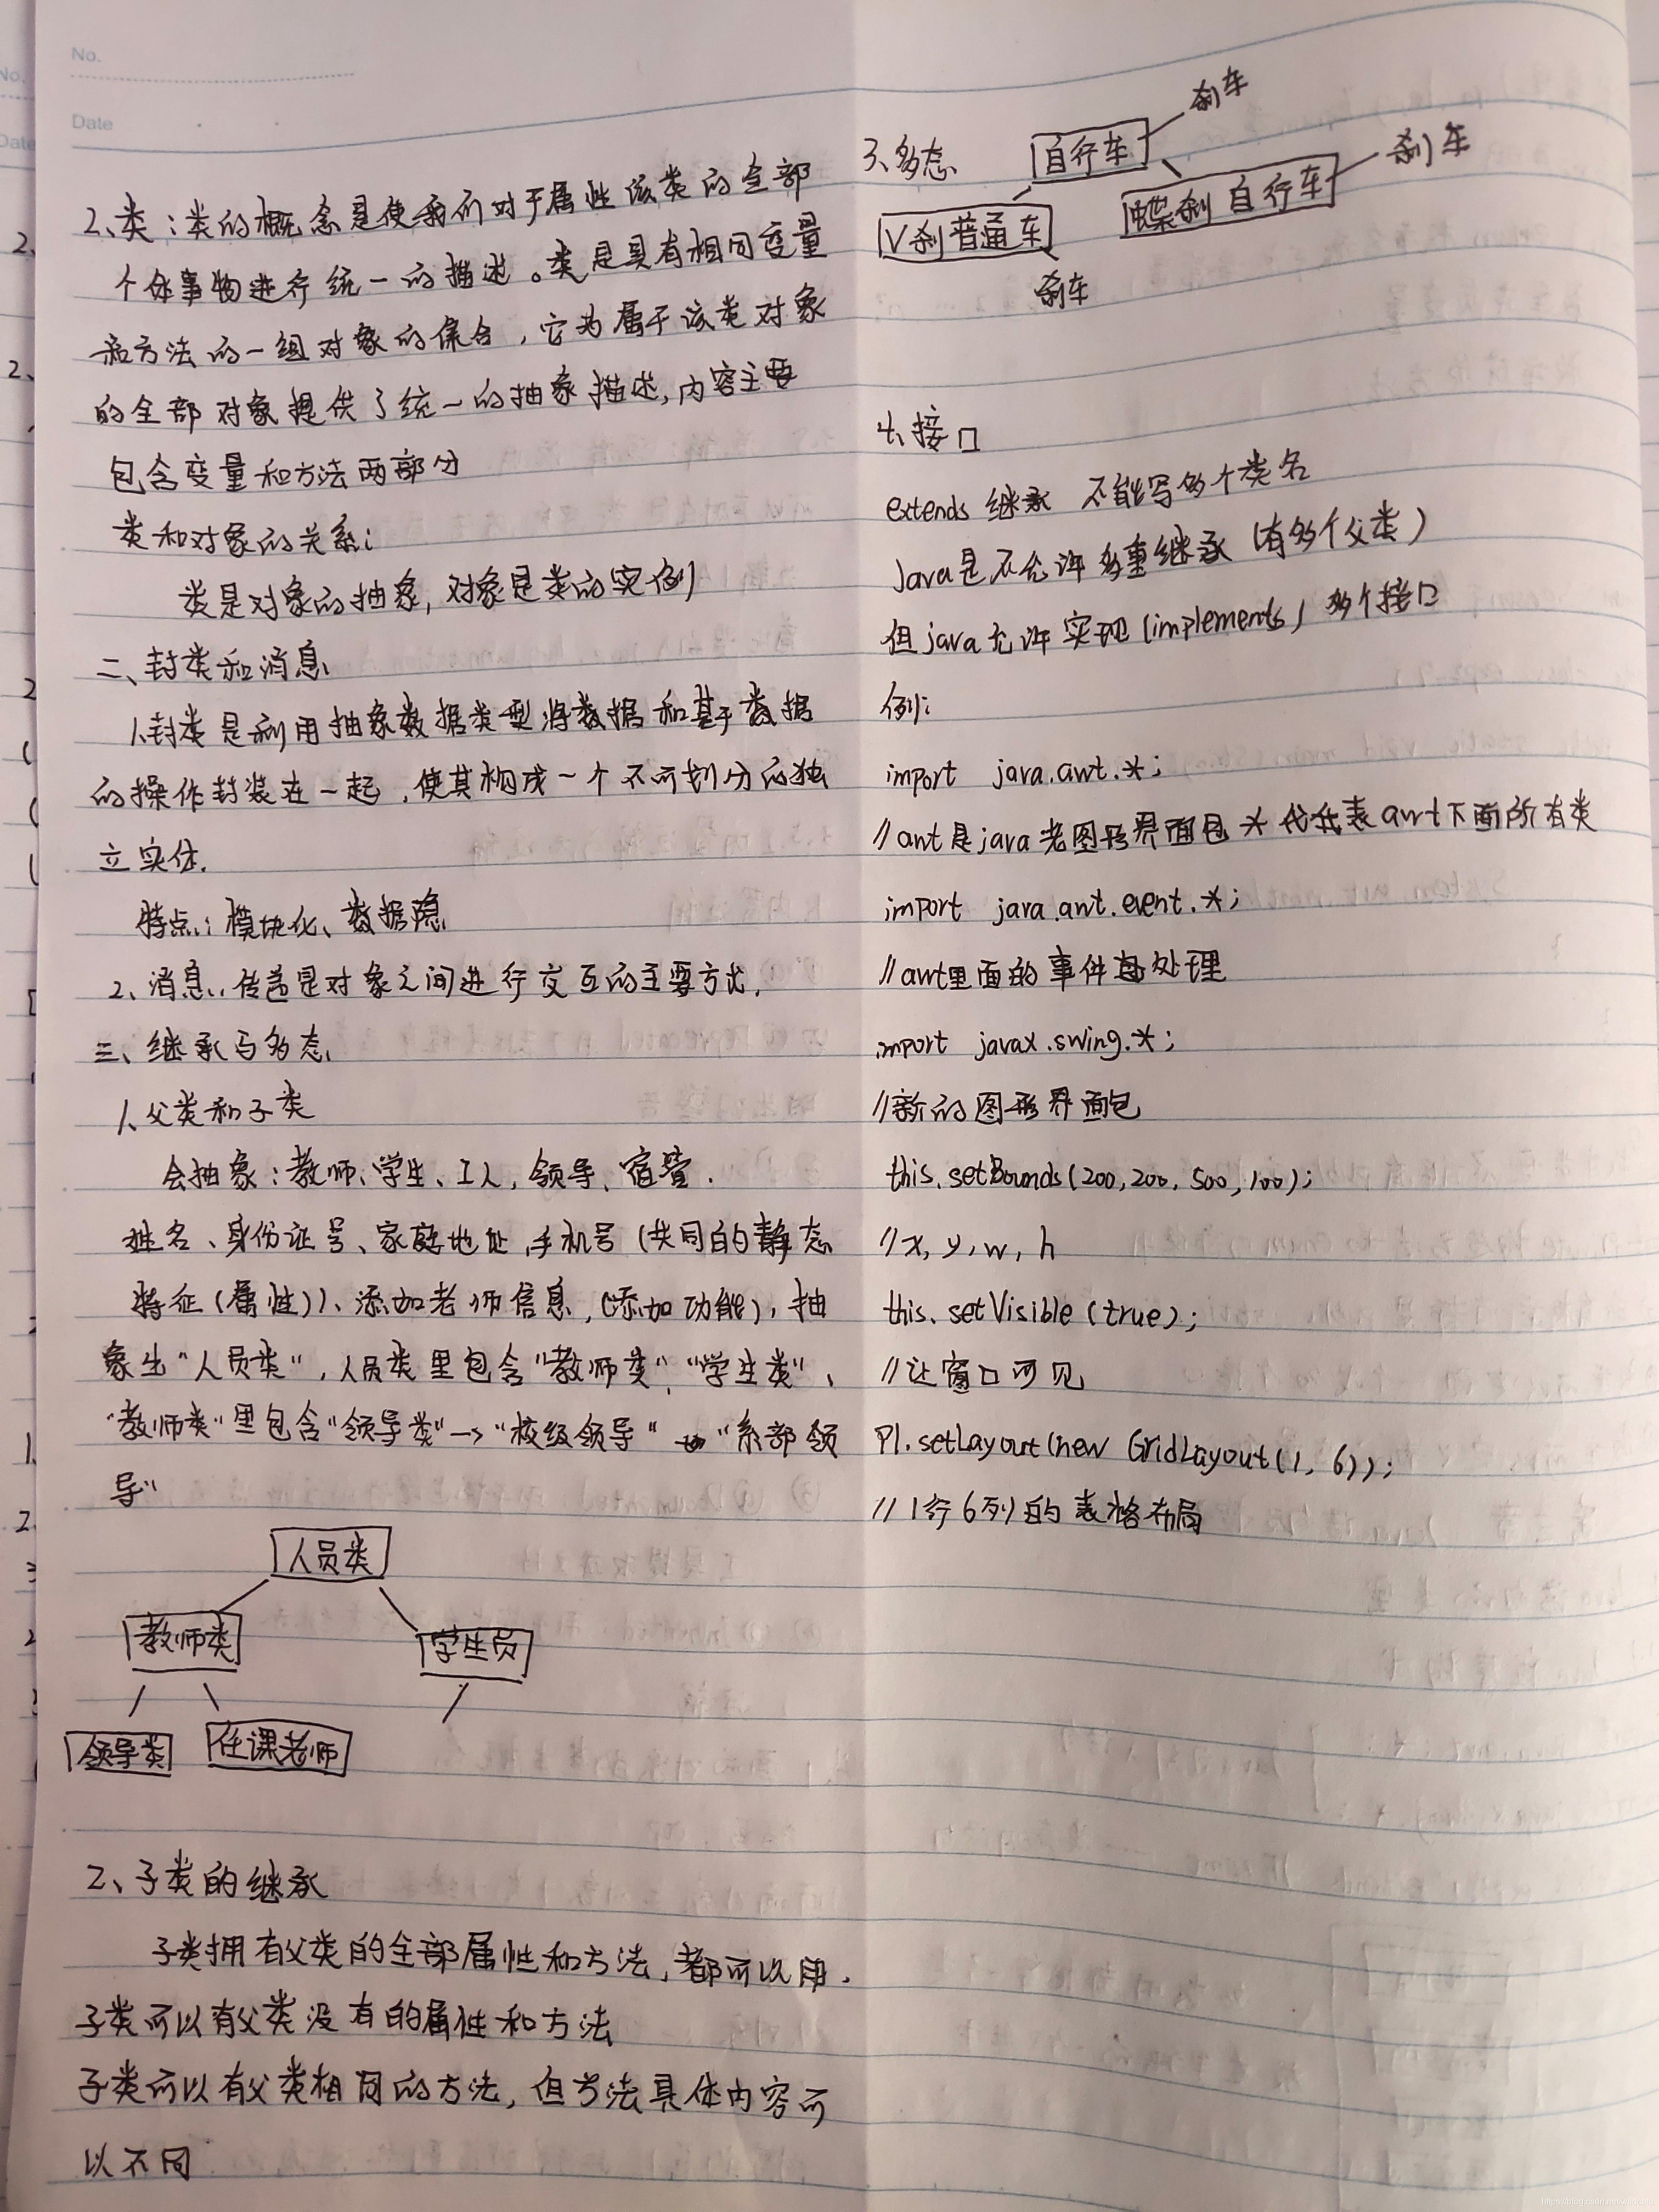 No.
Date
2、类：类的概念是使我们对于属性该类的全部
个体事物进行统一的描述。类是具有相同变量
和方法的一组对象的集合，它为属于该类对象
的全部对象提供了统一的抽象描述，内容主要
包含变量和方法两部分
类和对象的关系：
类是对象的抽象，对象是类的实例
二、封类和消息
1、封类是利用抽象数据类型将数据和基于数据
的操作封装在一起，使其构成一个不可划分的独
立实体.
特点：模块化、数据隐
2、消息：传递是对象之间进行交互的主要方式.
三、继承与多态
1、父类和子类
会抽象：教师、学生、工人，领导、宿管.
姓名、身份证号、家庭地址，手机号（共同的静态
特征（属性））、添加老师信息，（添加功能），抽
象出“人员类”，人员类里包含“教师类”，“学生类”，
“教师类”里包含“领导类”—>“校级领导” “系部领
导”
人员类
教师类
学生员
领导类
任课老师
2、子类的继承
子类拥有父类的全部属性和方法，都可以用.
子类可以有父类没有的属性和方法
子类可以有父类相同的方法，但方法具体内容可
以不同
3、多态
自行车
刹车
V刹普通车
刹车
碟刹自行车
刹车
4、接口
extends 继承 不能写多个类名
Java是不允许多重继承（有多个父类）
但java允许实现（implements）多个接口
例：
import java.awt.*;
//awt是java老图形界面包 * 代表awt下面所有类
import java.awt.event.*;
//awt里面的事件处理
import javax.swing.*;
//新的图形界面包
this.setBounds(200,200,500,100);
//x,y,w,h
this.setVisible(true);
//让窗口可见
P1.setLayout(new GridLayout(1,6));
//1行6列的表格布局